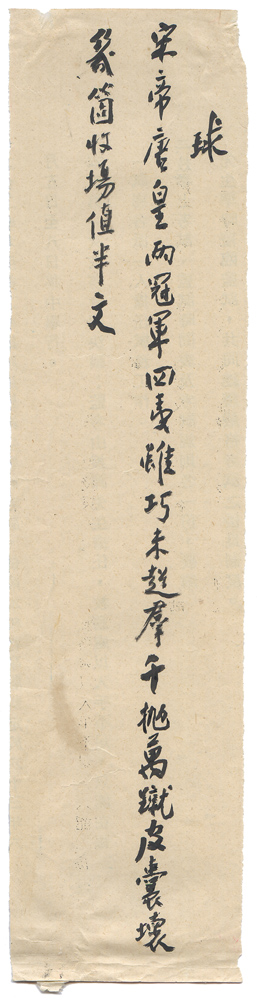 球
宋帝唐皇兩冠軍四夔雖巧未超羣千拋萬蹴皮囊壞
幾箇收場值半文